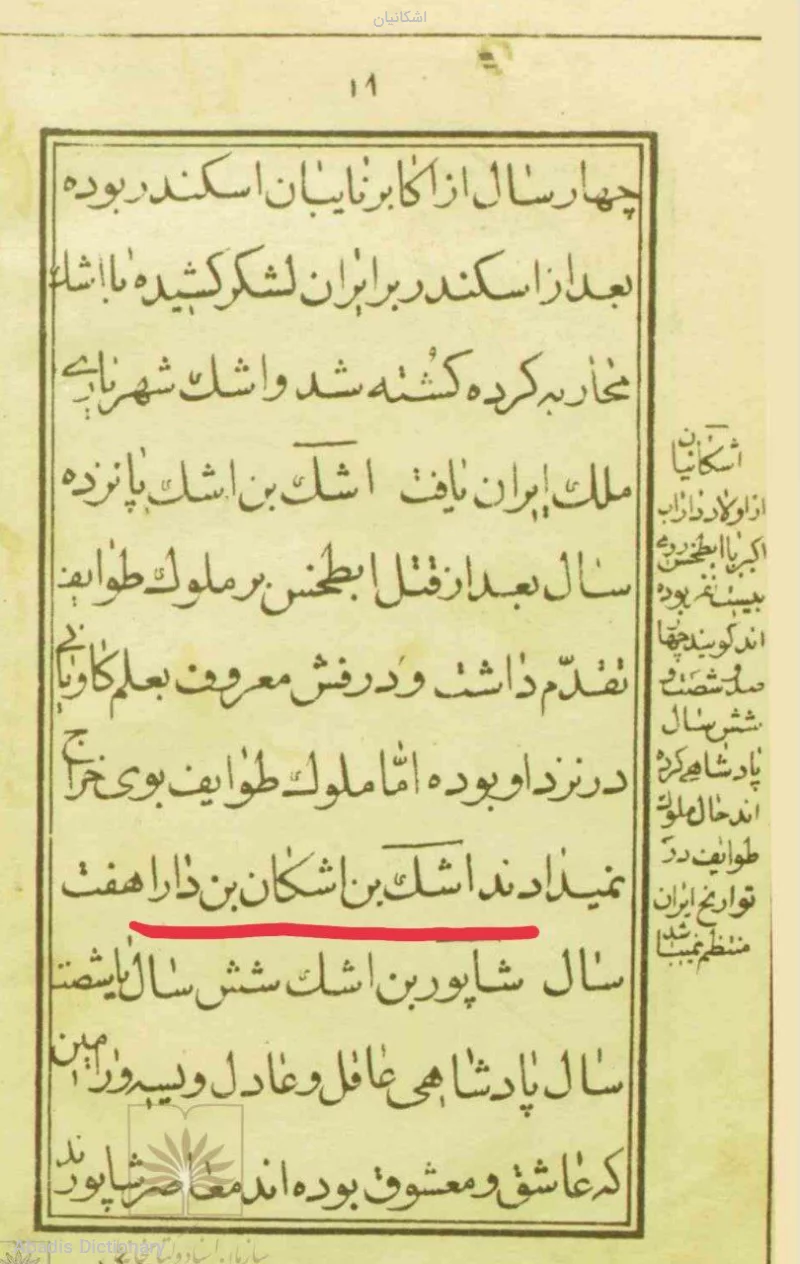 اشکانیان
۱۹
چهار سال از اکابر نایبان اسکندر بوده
بعد از اسکندر بر ایران لشکر کشیده با اشک
محاربه کرده کُشته شد و اشک شهریاری
ملک ایران یافت اشک بن اشک پانزده
سال بعد از قتل ابطحنس بر ملوک طوایف
تقدّم داشت و درفش معروف بعلم کاویانی
در نزد او بوده امّا ملوک طوایف بوی خراج
نمیدادند اشک بن اشکان بن دارا هفت
سال شاپور بن اشک شش سال یا شصت
سال پادشاهی عاقل و عادل ویسه و رامین
که عاشق و معشوق بوده اند معاصر شاپورند
اشکانیان
از اولاد داراب
اکبر با ابطحنس رومی
بیست نفر بوده
اند کویند چهار
صد و شصت و
شش سال
پادشاهی کرده
اند حال ملوک
طوایف در
تواریخ ایران
منتظم نمیباشد
Abadis Dictionary